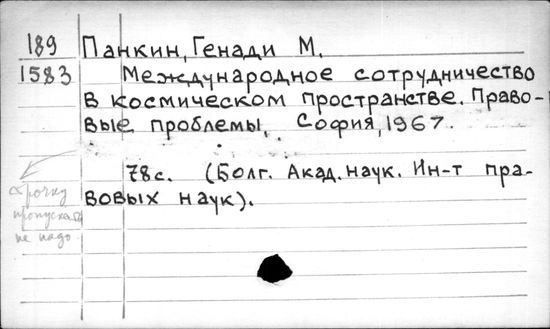 189 Панкин, Генади М.
1583 Международное сотрудничество
в космическом пространстве. Право-
вые проблемы, София, 1967.
78 с. (Болг. Акад. наук. Ин-т пра-
вовых наук).
строчку
пропускать
не надо